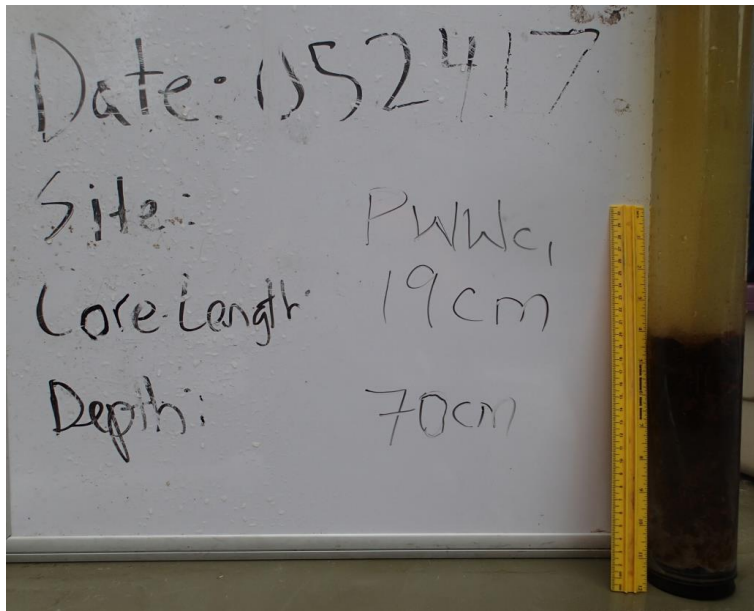 Date: 052417
Site: PWWC1
Core Length: 19cm
Depth: 70cm